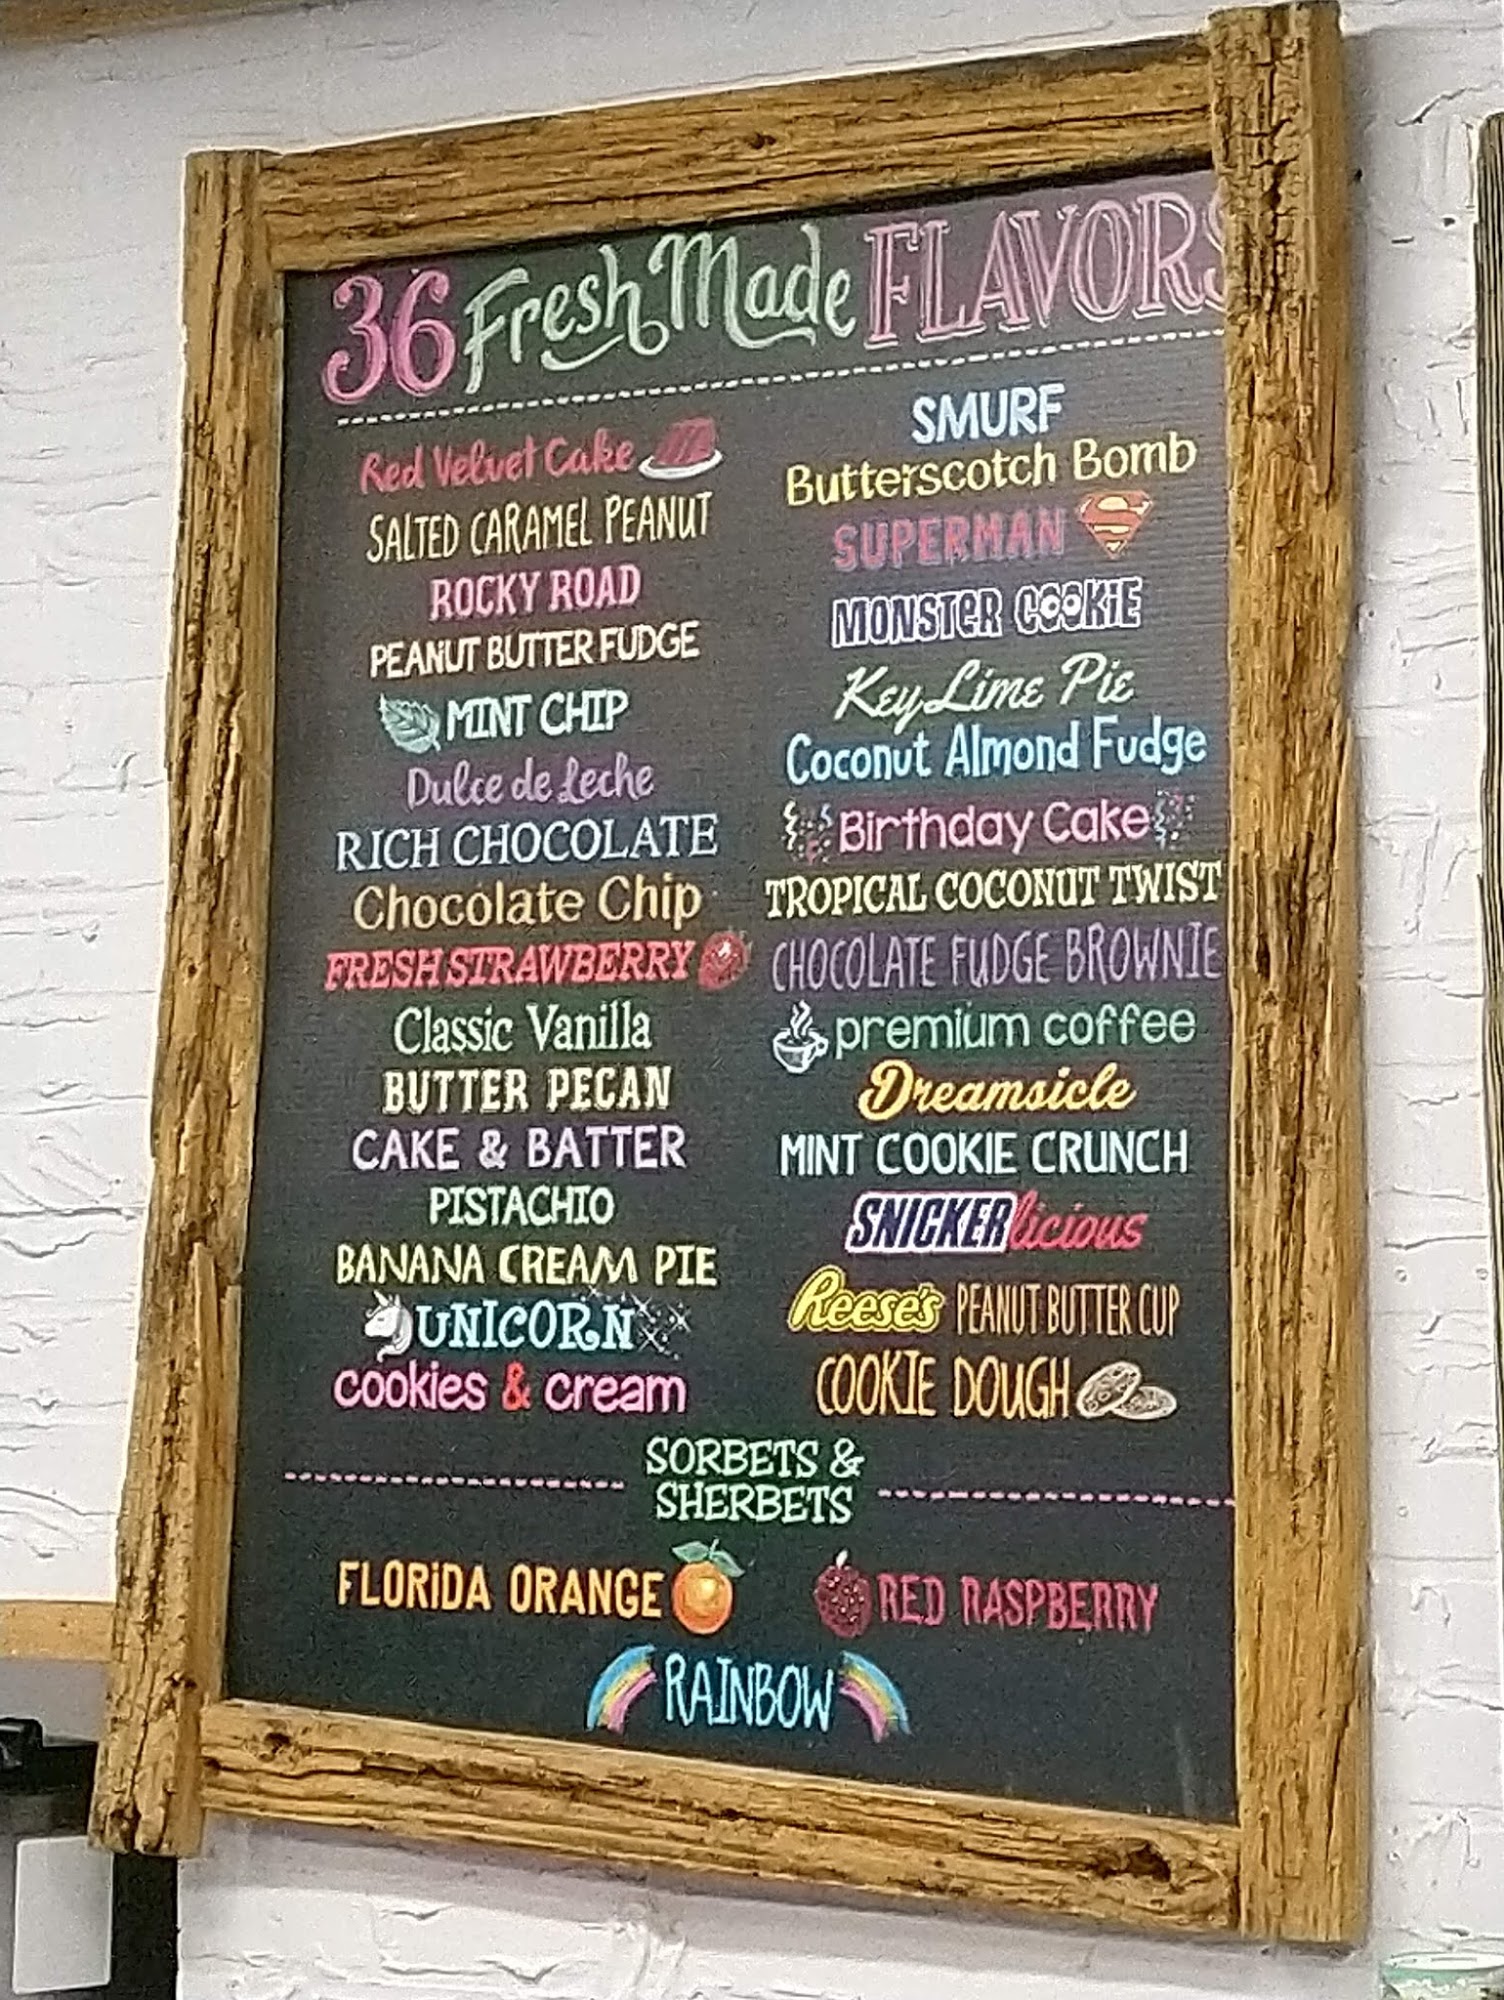 36 Fresh Made FLAVORS
Red Velvet Cake
SALTED CARAMEL PEANUT
ROCKY ROAD
PEANUT BUTTER FUDGE
MINT CHIP
Dulce de Leche
RICH CHOCOLATE
Chocolate Chip
FRESH STRAWBERRY
Classic Vanilla
BUTTER PECAN
CAKE & BATTER
PISTACHIO
BANANA CREAM PIE
UNICORN
cookies & cream
SMURF
Butterscotch Bomb
SUPERMAN S
MONSTER COOKiE
Key Lime Pie
Coconut Almond Fudge
Birthday Cake
TROPICAL COCONUT TWIST
CHOCOLATE FUDGE BROWNIE
premium coffee
Dreamsicle
MINT COOKIE CRUNCH
SNICKERlicious
Reese's PEANUT BUTTER CUP
COOKIE DOUGH
SORBETS &
SHERBETS
FLORiDA ORANGE
RED RASPBERRY
RAINBOW